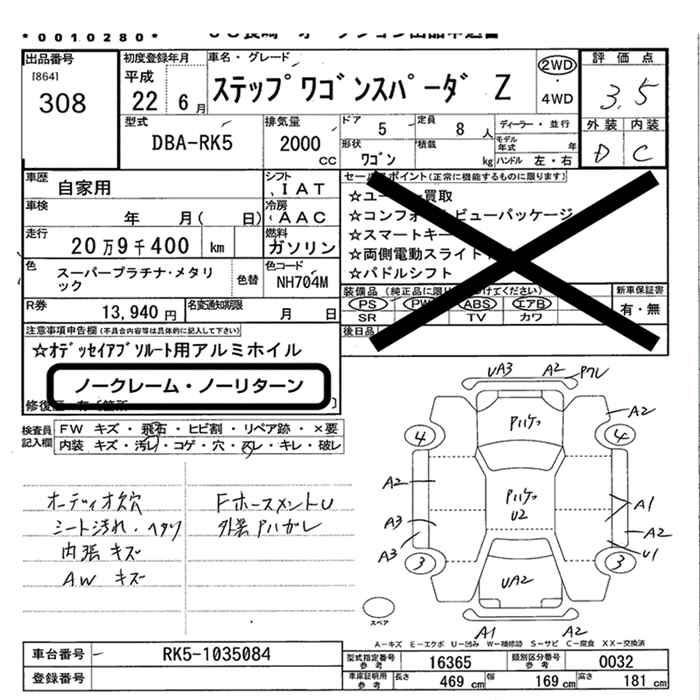 *0010280*
出品番号
[864]
308
初度登録年月
平成
22 6月
車名・グレード
ステップワゴンスパーダ Z
2WD
・
4WD
評価点
3.5
外装 内装
D C
型式
DBA-RK5
排気量
2000
CC
ドア
5
定員
8人
形状
ワゴン
積載
kg
ディーラー・並行
モデル年式
年
ハンドル 左・右
車歴
自家用
シフト
IAT
車検
年 月( 日)
冷房
AAC
走行
20万9千400 km
燃料
ガソリン
色
スーパープラチナ・メタリック
色替
色コード
NH704M
R券
13,940円
名変通知期限
月 日
セールスポイント(正常に機能するものに限ります)
☆ユーザー買取
☆コンフォートビューパッケージ
☆スマートキー
☆両側電動スライド
☆パドルシフト
PS PW ABS エアB
SR TV カワ
新車保証書
有・無
後日品
注意事項申告欄(不具合内容等は具体的に記入して下さい)
☆オデッセイアブソルート用アルミホイル
ノークレーム・ノーリターン
検査員記入欄
FW キズ・飛石・ヒビ割・リペア跡・×要
内装 キズ・汚レ・コゲ・穴・スレ・キレ・破レ
オーディオ欠穴
シート汚れ・ヘタリ
内張キズ
AW キズ
FホースメントU
外装アハガレ
UA3 A2 アワレ
アハゲ
A2
4 4
A2
アハゲ
U2
A1
A3
A2
A3
U1
3 3
UA2
A1 A2
スペア
A-キズ E-エクボ U-凹み W-補修跡 S-サビ C-腐食 XX-交換済
車台番号
RK5-1035084
登録番号
型式指定番号
参考
16365
類別区分番号
参考
0032
車庫証明用
参考
長さ
469 cm
幅
169 cm
高さ
181 cm